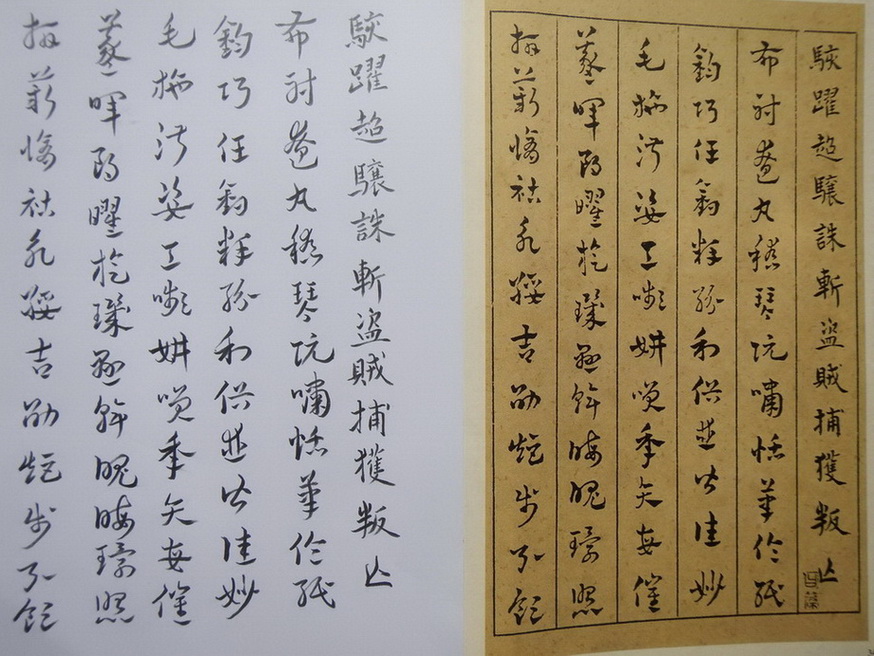 駭躍超驤誅斬盜賊捕獲叛亡
布射遼丸嵇琴阮嘯恬筆倫紙
鈞巧任釣釋紛利俗並皆佳妙
毛施淑姿工嚬妍笑年矢每催
羲暉朗曜旋璣懸斡魄晦環照
指薪脩祜永綏吉劭矩步引領
駭躍超驤誅斬盜賊捕獲叛亡
布射遼丸嵇琴阮嘯恬筆倫紙
鈞巧任釣釋紛利俗並皆佳妙
毛施淑姿工嚬妍笑年矢每催
羲暉朗曜旋璣懸斡晦魄環照
指薪脩祜永綏吉劭矩步引領